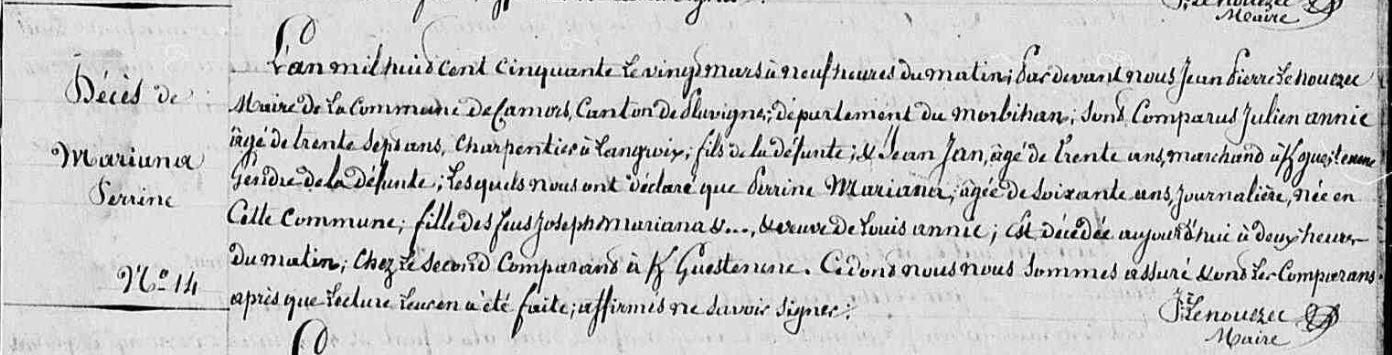 Lenouezec
Maire
Décès de
Mariana
Perrine
No 14
L'an mil huit cent cinquante le vingt mars à neuf heures du matin; Par devant nous Jean Pierre Lenouezec
Maire de la Commune de Camors, Canton de Pluvigner, département du morbihan; sont Comparus Julien annic
âgé de trente sept ans, Charpentier à Langroix; fils de la défunte; & Jean Jan, âgé de trente ans, marchand à K/guestenenne
Gendre de la défunte; lesquels nous ont déclaré que Perrine Mariana, âgée de soixante ans, journalière, née en
Cette Commune; fille des feus Joseph mariana & ..., & veuve de Louis annic; Est décédée aujourd'hui à deux heures
du matin; Chez le second Comparant à K/ Guestenene. Ce dont nous nous sommes assuré & ont les Comparans
après que lecture leur en a été faite; affirmés ne savoir signer.
Lenouezec
Maire